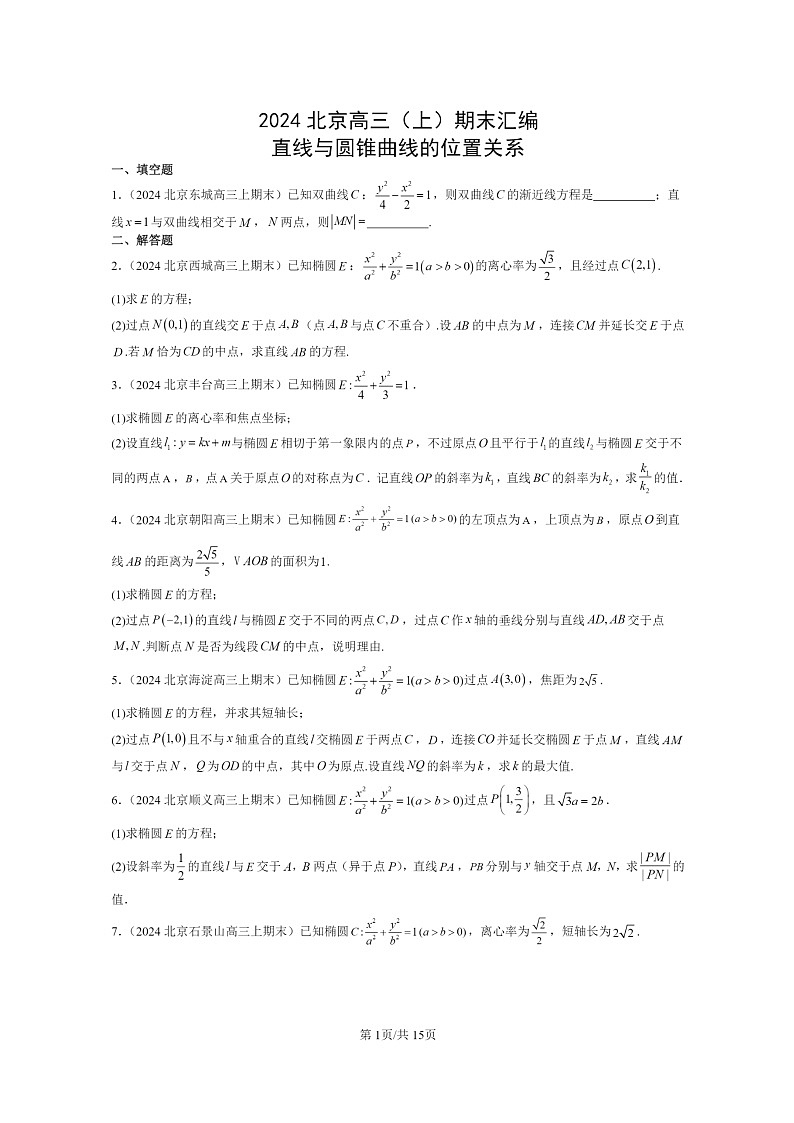 2024 北京高三（上）期末汇编
直线与圆锥曲线的位置关系
一、填空题
1.（2024 北京东城高三上期末）已知双曲线 C：y²/4 − x²/2 = 1，则双曲线 C 的渐近线方程是__________；直
线 x = 1 与双曲线相交于 M，N 两点，则 |MN| = __________.
二、解答题
2.（2024 北京西城高三上期末）已知椭圆 E：x²/a² + y²/b² = 1(a > b > 0) 的离心率为 √3/2，且经过点 C(2,1).
(1)求 E 的方程；
(2)过点 N(0,1) 的直线交 E 于点 A,B（点 A,B 与点 C 不重合）.设 AB 的中点为 M，连接 CM 并延长交 E 于点
D.若 M 恰为 CD 的中点，求直线 AB 的方程.
3.（2024 北京丰台高三上期末）已知椭圆 E: x²/4 + y²/3 = 1.
(1)求椭圆 E 的离心率和焦点坐标；
(2)设直线 l₁: y = kx + m 与椭圆 E 相切于第一象限内的点 P，不过原点 O 且平行于 l₁ 的直线 l₂ 与椭圆 E 交于不
同的两点 A，B，点 A 关于原点 O 的对称点为 C．记直线 OP 的斜率为 k₁，直线 BC 的斜率为 k₂，求 k₁/k₂ 的值.
4.（2024 北京朝阳高三上期末）已知椭圆 E: x²/a² + y²/b² = 1(a > b > 0) 的左顶点为 A，上顶点为 B，原点 O 到直
线 AB 的距离为 2√5/5，V AOB 的面积为1.
(1)求椭圆 E 的方程；
(2)过点 P(−2,1) 的直线 l 与椭圆 E 交于不同的两点 C,D，过点 C 作 x 轴的垂线分别与直线 AD,AB 交于点
M,N.判断点 N 是否为线段 CM 的中点，说明理由.
5.（2024 北京海淀高三上期末）已知椭圆 E: x²/a² + y²/b² = 1(a > b > 0) 过点 A(3,0)，焦距为 2√5.
(1)求椭圆 E 的方程，并求其短轴长；
(2)过点 P(1,0) 且不与 x 轴重合的直线 l 交椭圆 E 于两点 C，D，连接 CO 并延长交椭圆 E 于点 M，直线 AM
与 l 交于点 N，Q 为 OD 的中点，其中 O 为原点.设直线 NQ 的斜率为 k，求 k 的最大值.
6.（2024 北京顺义高三上期末）已知椭圆 E: x²/a² + y²/b² = 1(a > b > 0) 过点 P(1, 3/2)，且 √3a = 2b.
(1)求椭圆 E 的方程；
(2)设斜率为 1/2 的直线 l 与 E 交于 A，B 两点（异于点 P），直线 PA，PB 分别与 y 轴交于点 M，N，求 |PM|/|PN| 的
值.
7.（2024 北京石景山高三上期末）已知椭圆 C: x²/a² + y²/b² = 1(a > b > 0)，离心率为 √2/2，短轴长为 2√2.
第 1页/共 15页